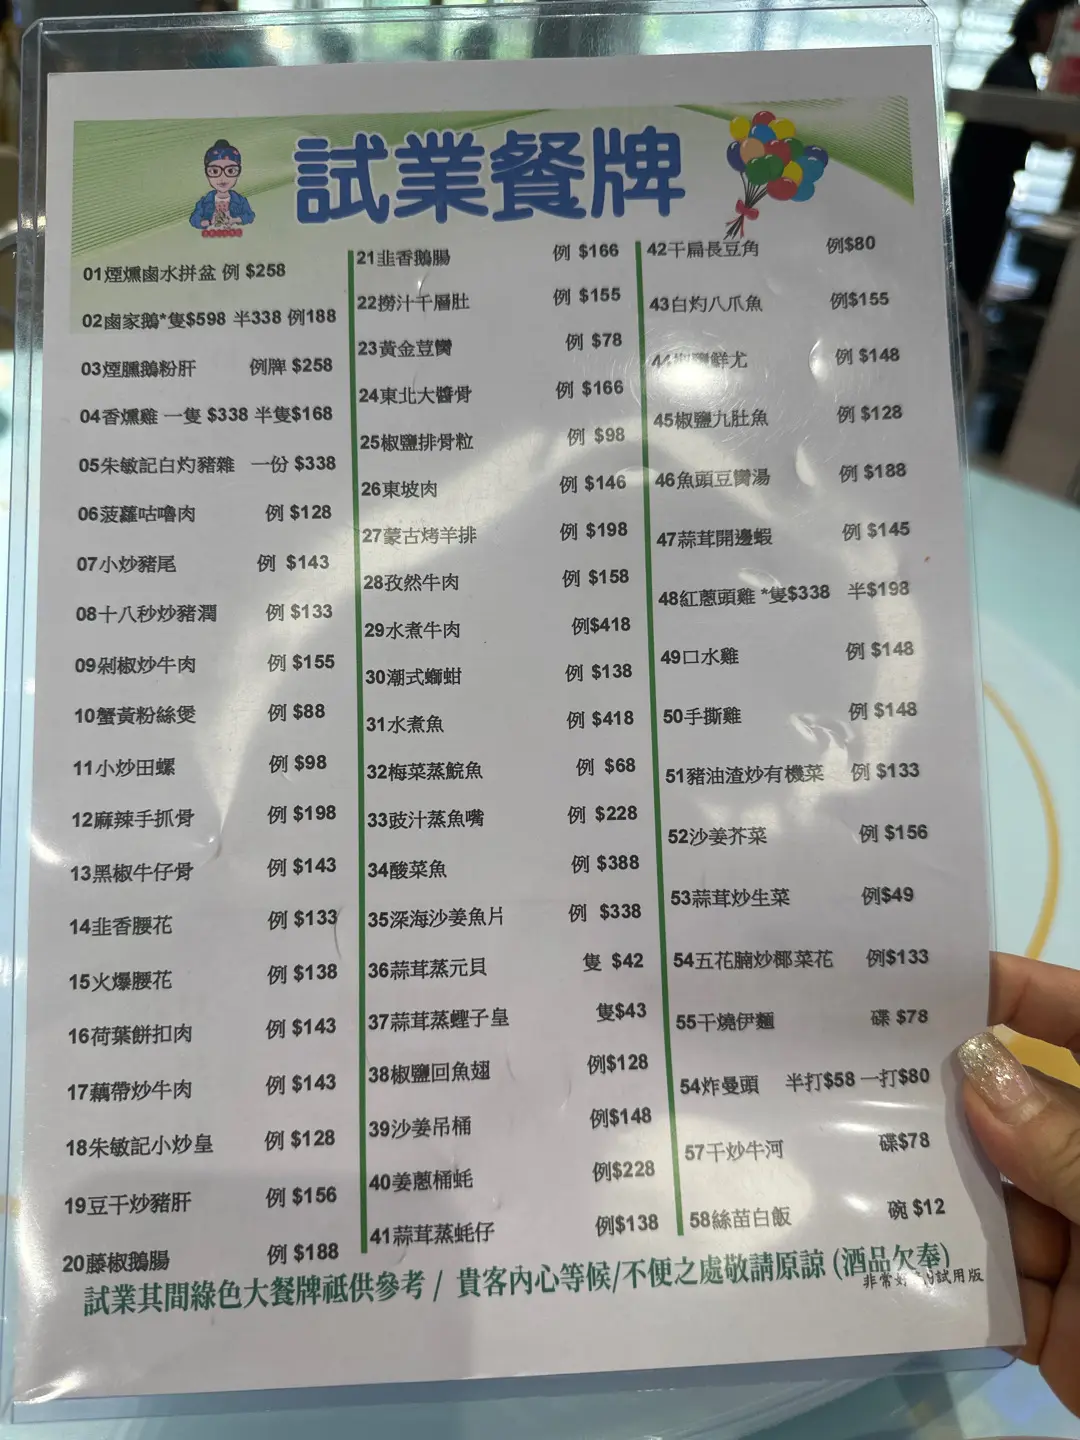 試業餐牌
01煙燻鹵水拼盆 例 $258
02鹵家鵝*隻$598 半338 例188
03煙臐鵝粉肝 例牌 $258
04香燻雞 一隻 $338 半隻$168
05朱敏記白灼豬雜 一份 $338
06菠蘿咕嚕肉 例 $128
07小炒豬尾 例 $143
08十八秒炒豬潤 例 $133
09剁椒炒牛肉 例 $155
10蟹黃粉絲煲 例 $88
11小炒田螺 例 $98
12麻辣手抓骨 例 $198
13黑椒牛仔骨 例 $143
14韭香腰花 例 $133
15火爆腰花 例 $138
16荷葉餅扣肉 例 $143
17藕帶炒牛肉 例 $143
18朱敏記小炒皇 例 $128
19豆干炒豬肝 例 $156
20藤椒鵝腸 例 $188
21韭香鵝腸 例 $166
22撈汁千層肚 例 $155
23黃金荳膶 例 $78
24東北大醬骨 例 $166
25椒鹽排骨粒 例 $98
26東坡肉 例 $146
27蒙古烤羊排 例 $198
28孜然牛肉 例 $158
29水煮牛肉 例$418
30潮式螄蚶 例 $138
31水煮魚 例 $418
32梅菜蒸鯇魚 例 $68
33豉汁蒸魚嘴 例 $228
34酸菜魚 例 $388
35深海沙姜魚片 例 $338
36蒜茸蒸元貝 隻 $42
37蒜茸蒸蟶子皇 隻$43
38椒鹽回魚翅 例$128
39沙姜吊桶 例$148
40姜蔥桶蚝 例$228
41蒜茸蒸蚝仔 例$138
42干扁長豆角 例$80
43白灼八爪魚 例$155
44椒鹽鮮尤 例 $148
45椒鹽九肚魚 例 $128
46魚頭豆膶湯 例 $188
47蒜茸開邊蝦 例 $145
48紅蔥頭雞 *隻$338 半$198
49口水雞 例 $148
50手撕雞 例 $148
51豬油渣炒有機菜 例 $133
52沙姜芥菜 例 $156
53蒜茸炒生菜 例$49
54五花腩炒椰菜花 例$133
55干燒伊麵 碟 $78
54炸曼頭 半打$58 一打$80
57干炒牛河 碟$78
58絲苗白飯 碗 $12
試業其間綠色大餐牌祗供參考 / 貴客內心等候/不便之處敬請原諒 (酒品欠奉)
非常好 試用版